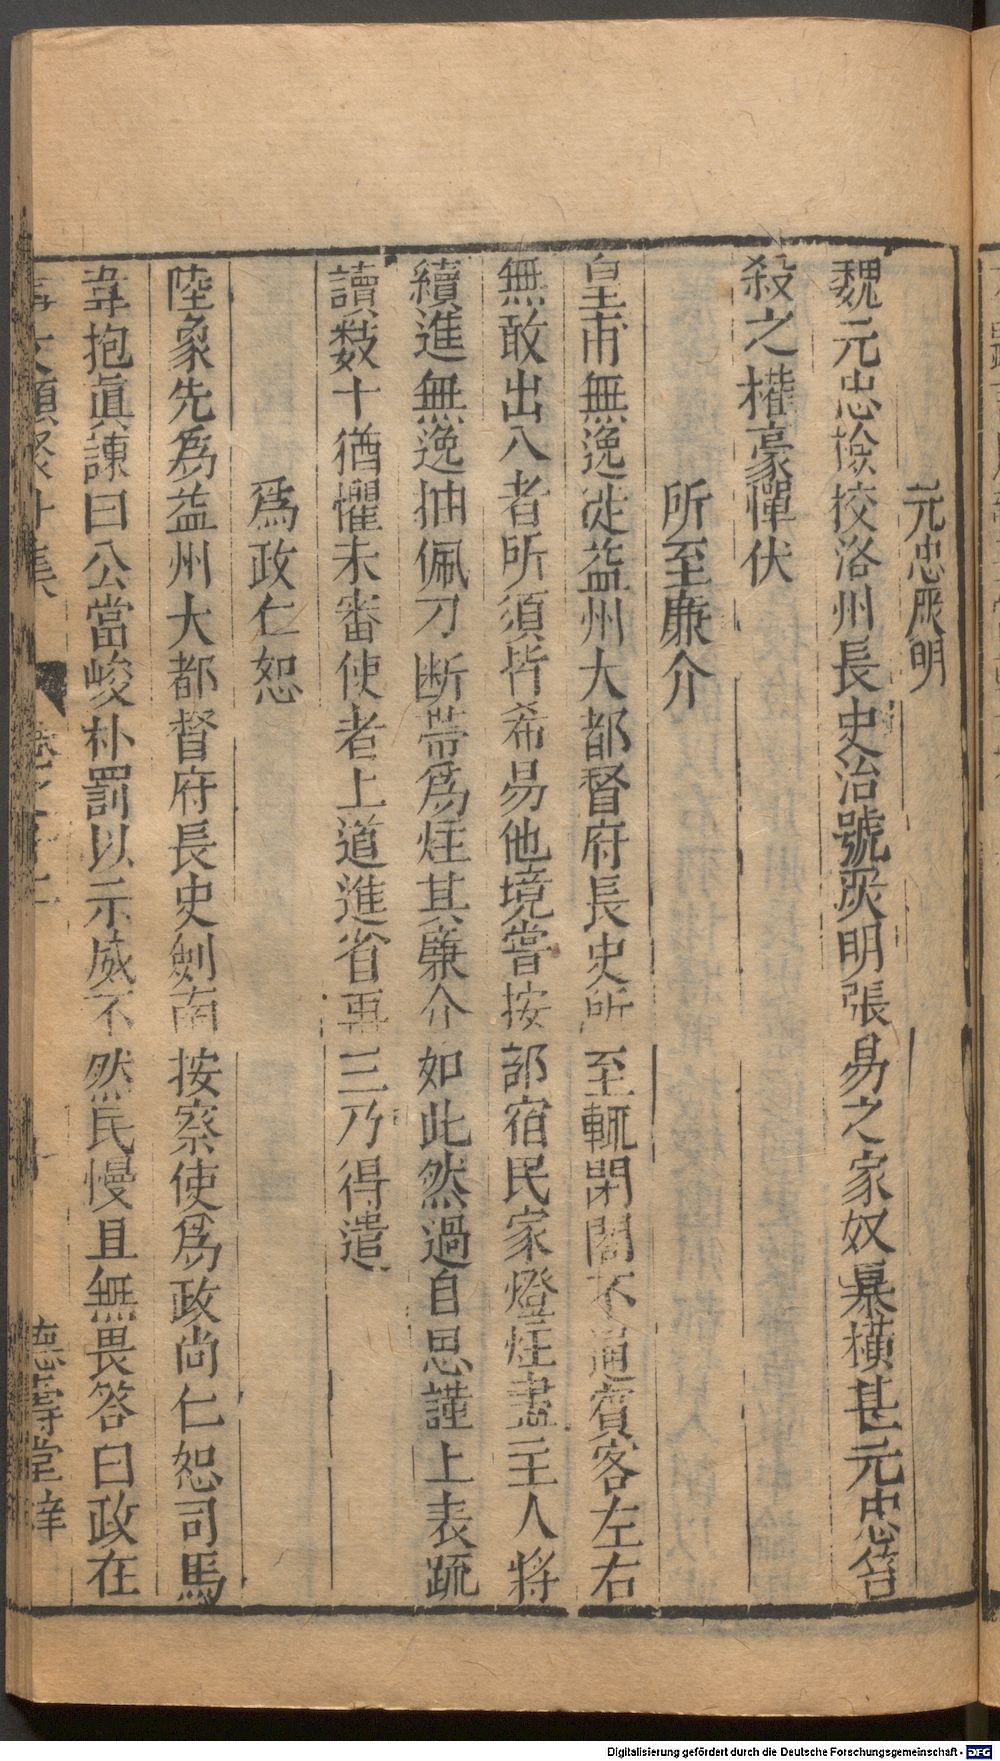 元忠嚴明
魏元忠撿挍洛州長史治號嚴明張易之家奴暴橫甚元忠笞
殺之權豪憚伏
所至廉介
皇甫無逸徙益州大都督府長史所至輒閉閤不通賓客左右
無敢出入者所須皆希易他境嘗按部宿民家燈炷盡主人將
續進無逸抽佩刀断帶爲炷其廉介如此然過自思謹上表疏
讀數十猶懼未審使者上道進省再三乃得遣
爲政仁恕
陸象先爲益州大都督府長史劍南按察使爲政尚仁恕司馬
韋抱眞諫曰公當峻朴罰以示威不然民慢且無畏答曰政在
事文類聚外集 卷之十一 德壽堂梓
Digitalisierung gefördert durch die Deutsche Forschungsgemeinschaft - DFG